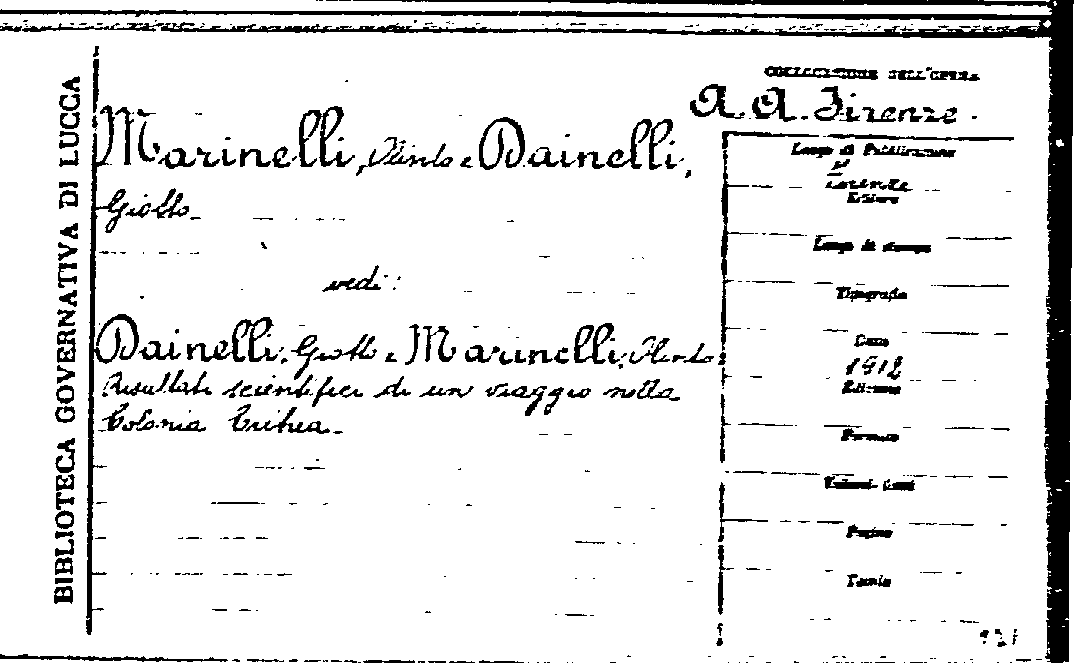 BIBLIOTECA GOVERNATIVA DI LUCCA
COLLOCAZIONE DELL'OPERA
A. A. Firenze.
Marinelli, Olinto e Dainelli,
Giotto
vedi:
Dainelli, Giotto e Marinelli, Olinto
Risultati scientifici di un viaggio nella
Colonia Eritrea.
Luogo di Pubblicazione
Firenze
Editore
Luogo di stampa
Tipografia
Data
1912
Edizione
Formato
Volumi
Pagine
Tavole